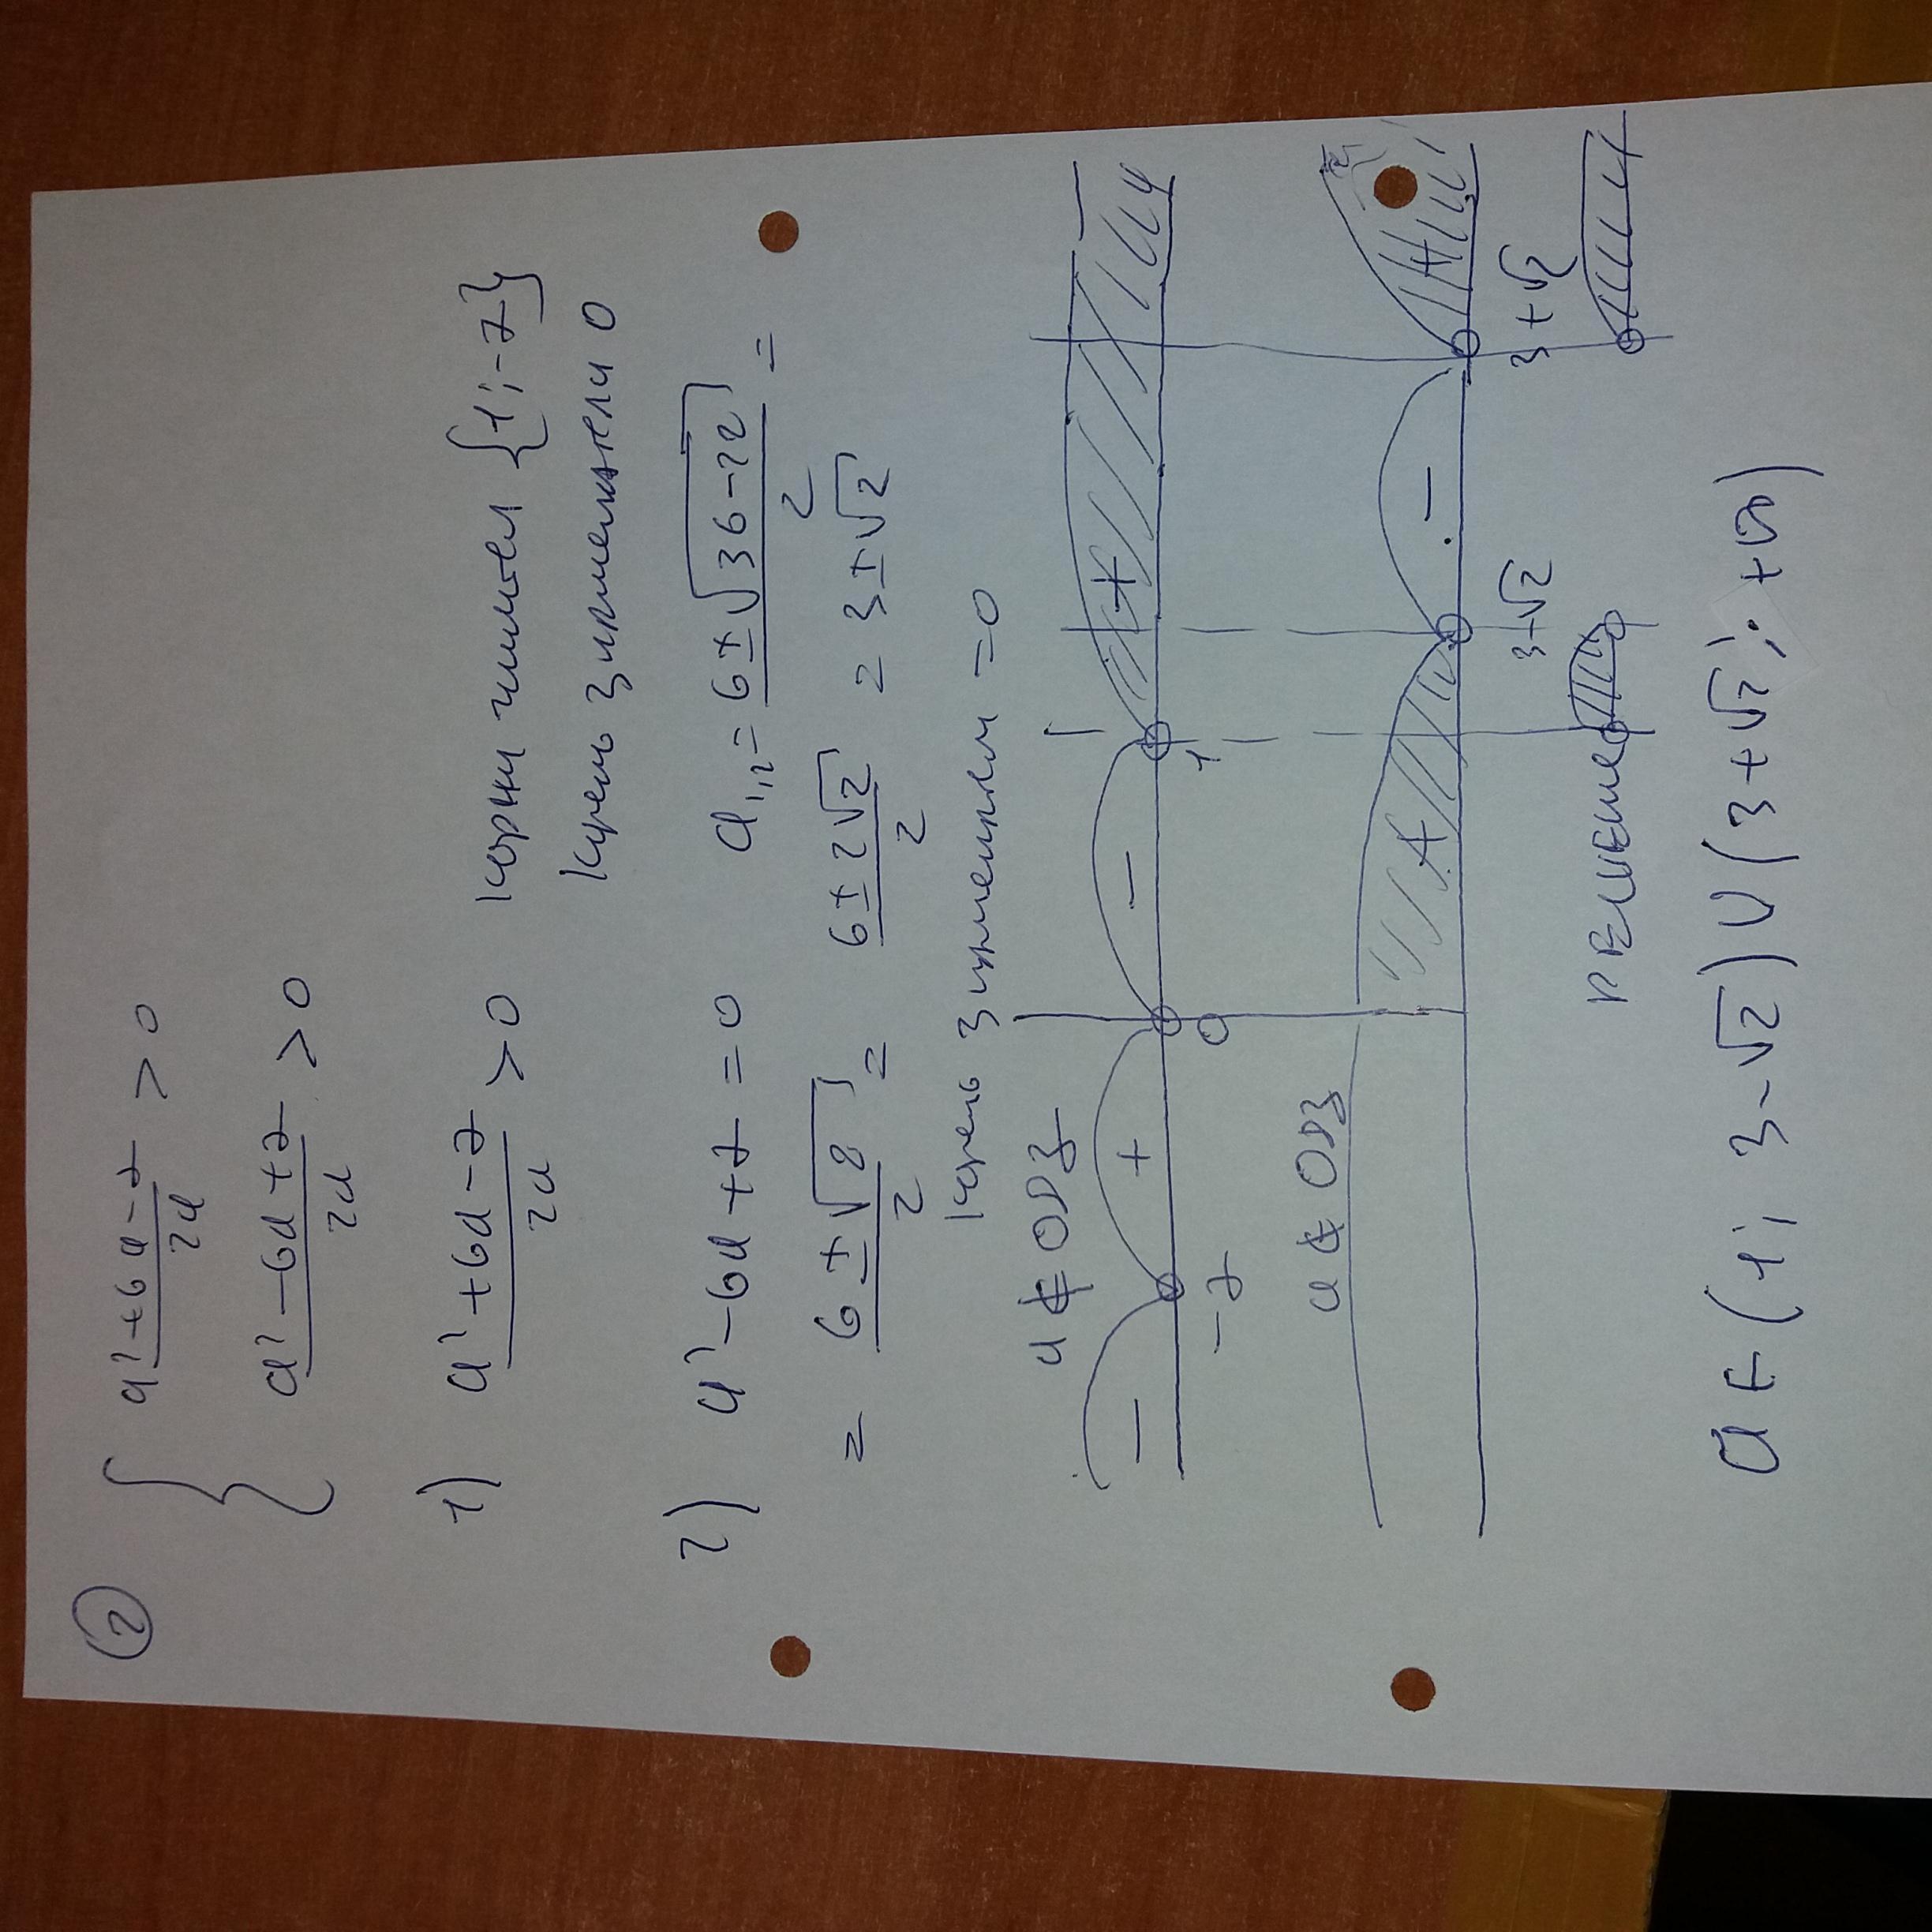 ②
{ (a²+6a-7)/(2a) > 0
(a²-6a+7)/(2a) > 0
1) (a²+6a-7)/(2a) > 0 корни числител {1;-7}
корень знаменателя 0
2) a²-6a+7=0 a₁,₂ = (6±√(36-28))/2 =
= (6±√8)/2 = (6±2√2)/2 = 3±√2
корень знаменател =0
a ∉ ОДЗ
- + - +
-7 0 1
a ∉ ОДЗ
+ - +
3-√2 3+√2
РЕШЕНИЕ
a ∈ (1; 3-√2) ∪ (3+√2; +∞)